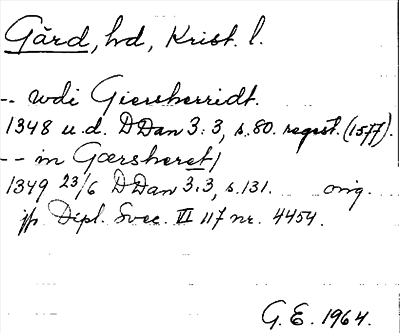 Gärd, hd, Krist. l.
-- wdi Giersherridt.
1348 u.d. DDan 3:3, s. 80. regest. (1577).
-- in Gærsheret/
1349 23/6 DDan 3:3, s. 131. orig.
jfr Dipl. Svec. VI 117 nr. 4454.
G.E. 1964.